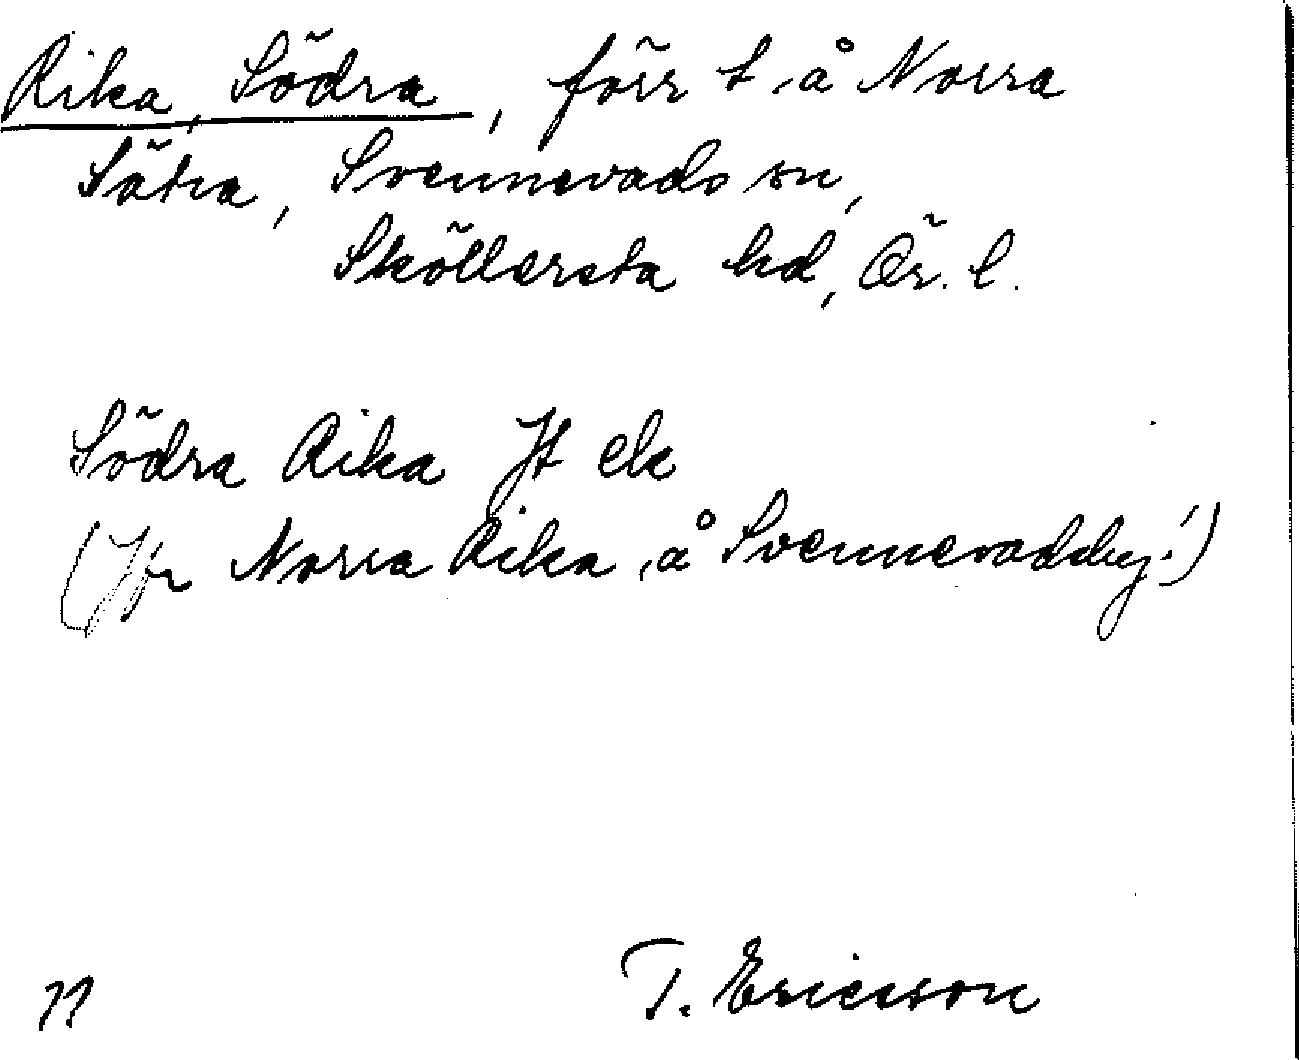 Rika, Södra, förr t. å Norra
Sätra, Svennevads sn,
Sköllersta hd, Ör. l.
Södra Rika Jt ek
(Jfr Norra Rika, å Svennevadby!)
T. Ericsson